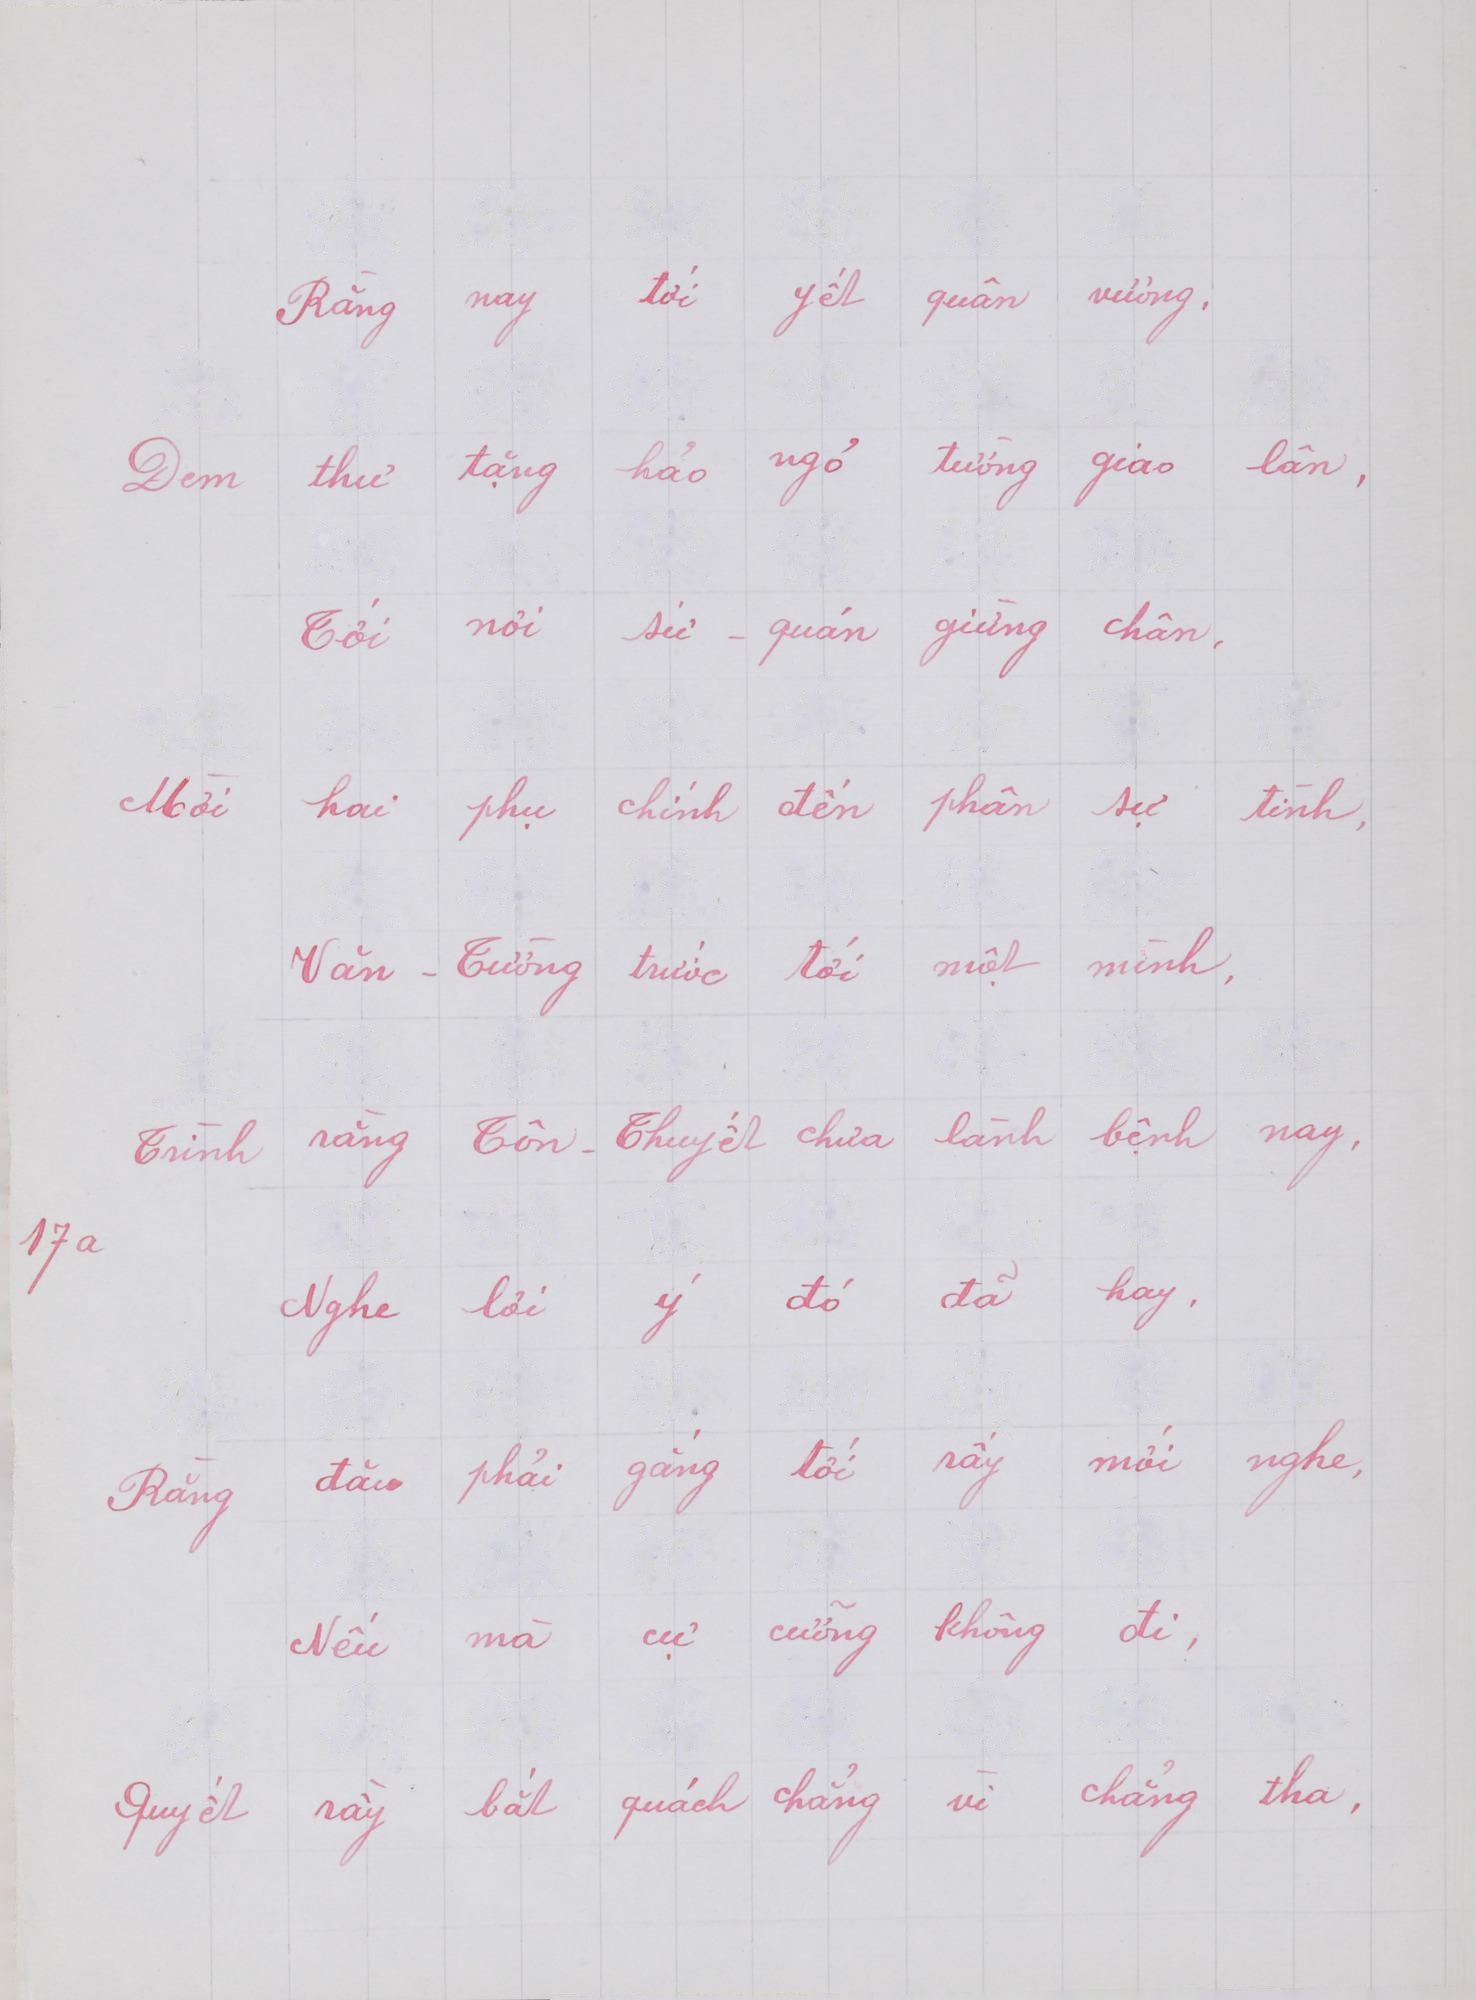 Rằng nay tới yết quân vương,
Đem thư tặng hảo ngỏ tường giao lân,
Tới nơi sứ - quán giừng chân,
Mời hai phụ chính đến phân sự tình,
Văn - Tường trước tới một mình,
Trình rằng Tôn - Thuyết chưa lành bệnh nay,
17a
Nghe lời ý đó đã hay,
Rằng đău phải gắng tới rấy mới nghe,
Nếu mà cự cưỡng không đi,
Quyết rầy bắt quách chẳng vì chẳng tha,